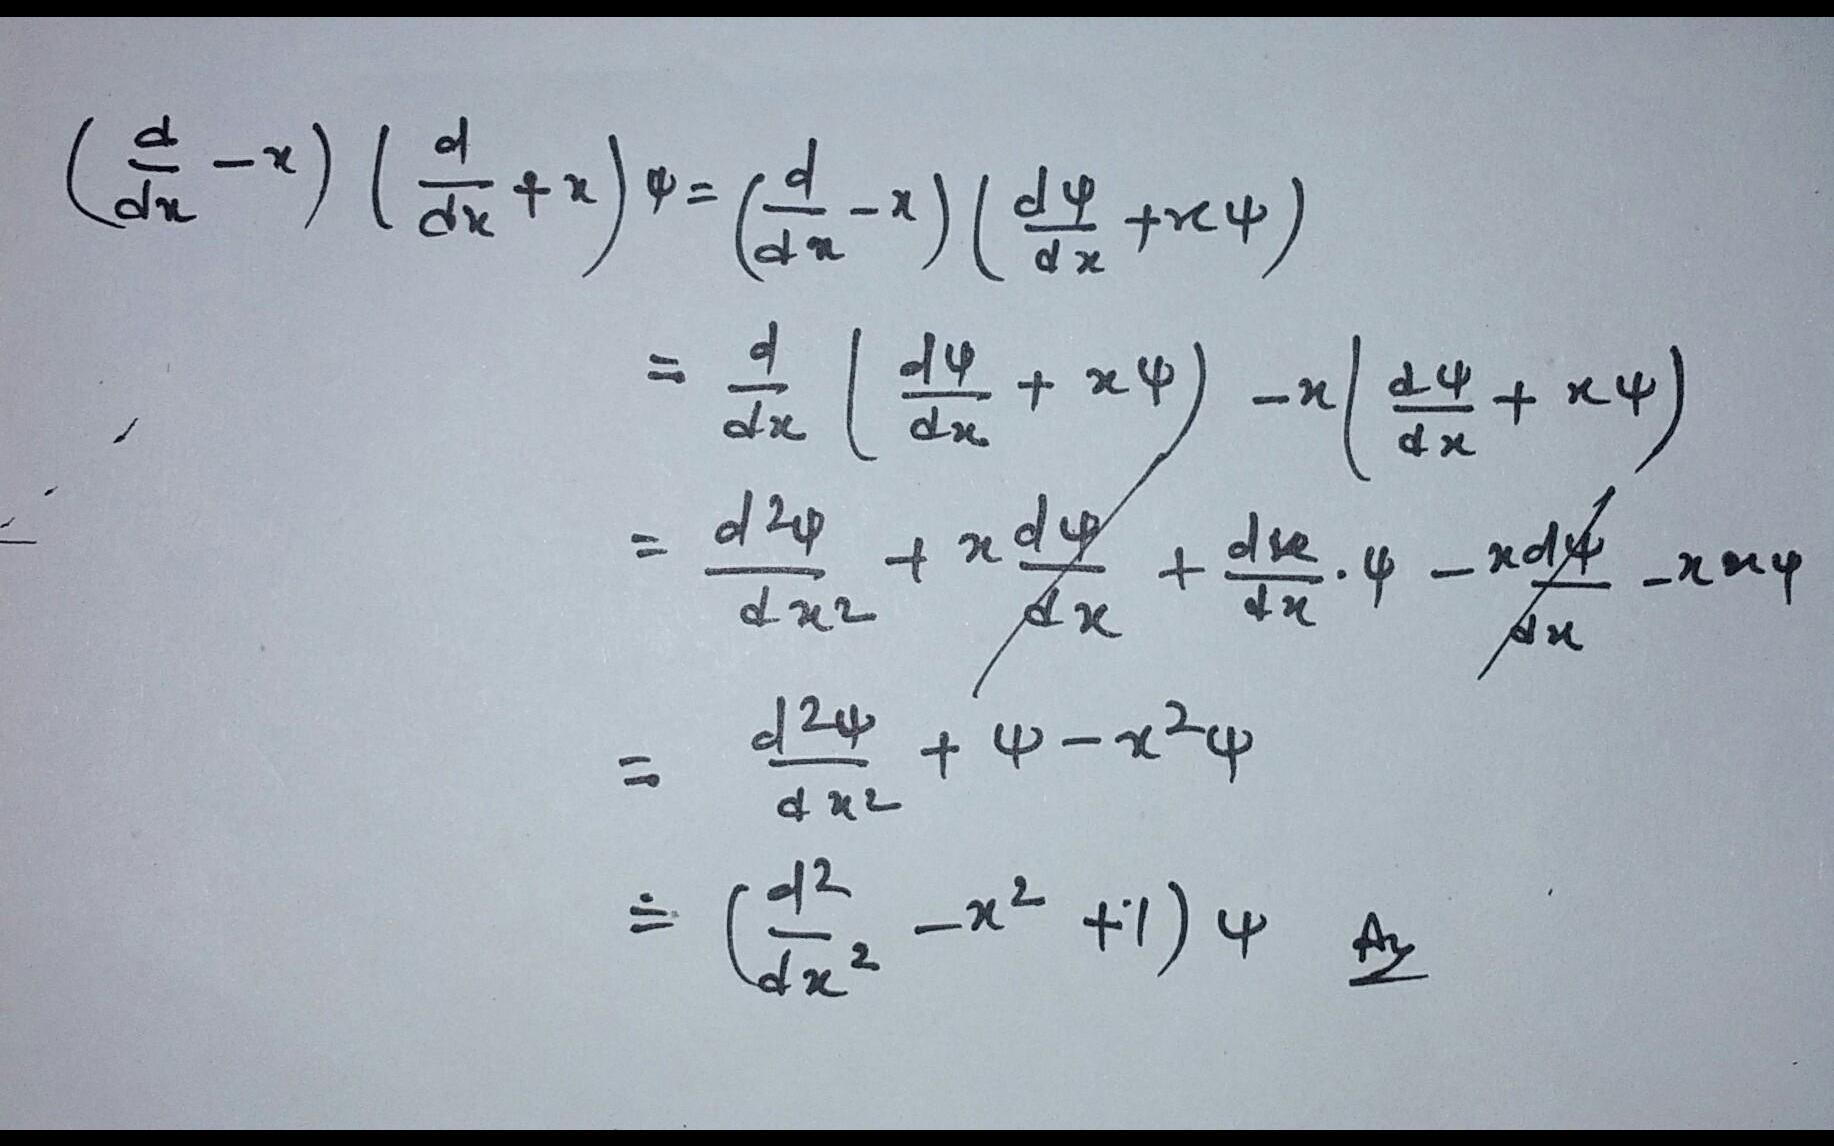 (d/dx - x) (d/dx + x) ψ = (d/dx - x) (dψ/dx + xψ)
= d/dx (dψ/dx + xψ) - x (dψ/dx + xψ)
= d²ψ/dx² + x dψ/dx + dx/dx · ψ - x dψ/dx - x x ψ
= d²ψ/dx² + ψ - x²ψ
= (d²/dx² - x² + 1) ψ